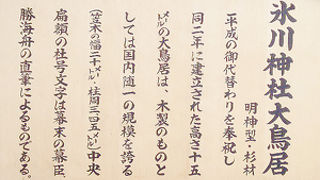 氷川神社大鳥居
明神型・杉材
平成の御代替わりを奉祝し
同二年に建立された高さ十五
㍍の大鳥居は、木製のものと
しては国内随一の規模を誇る
(笠木の幅二十㍍・柱周三四五㍍)中央
扁額の社号文字は幕末の幕臣
勝海舟の直筆によるものである。